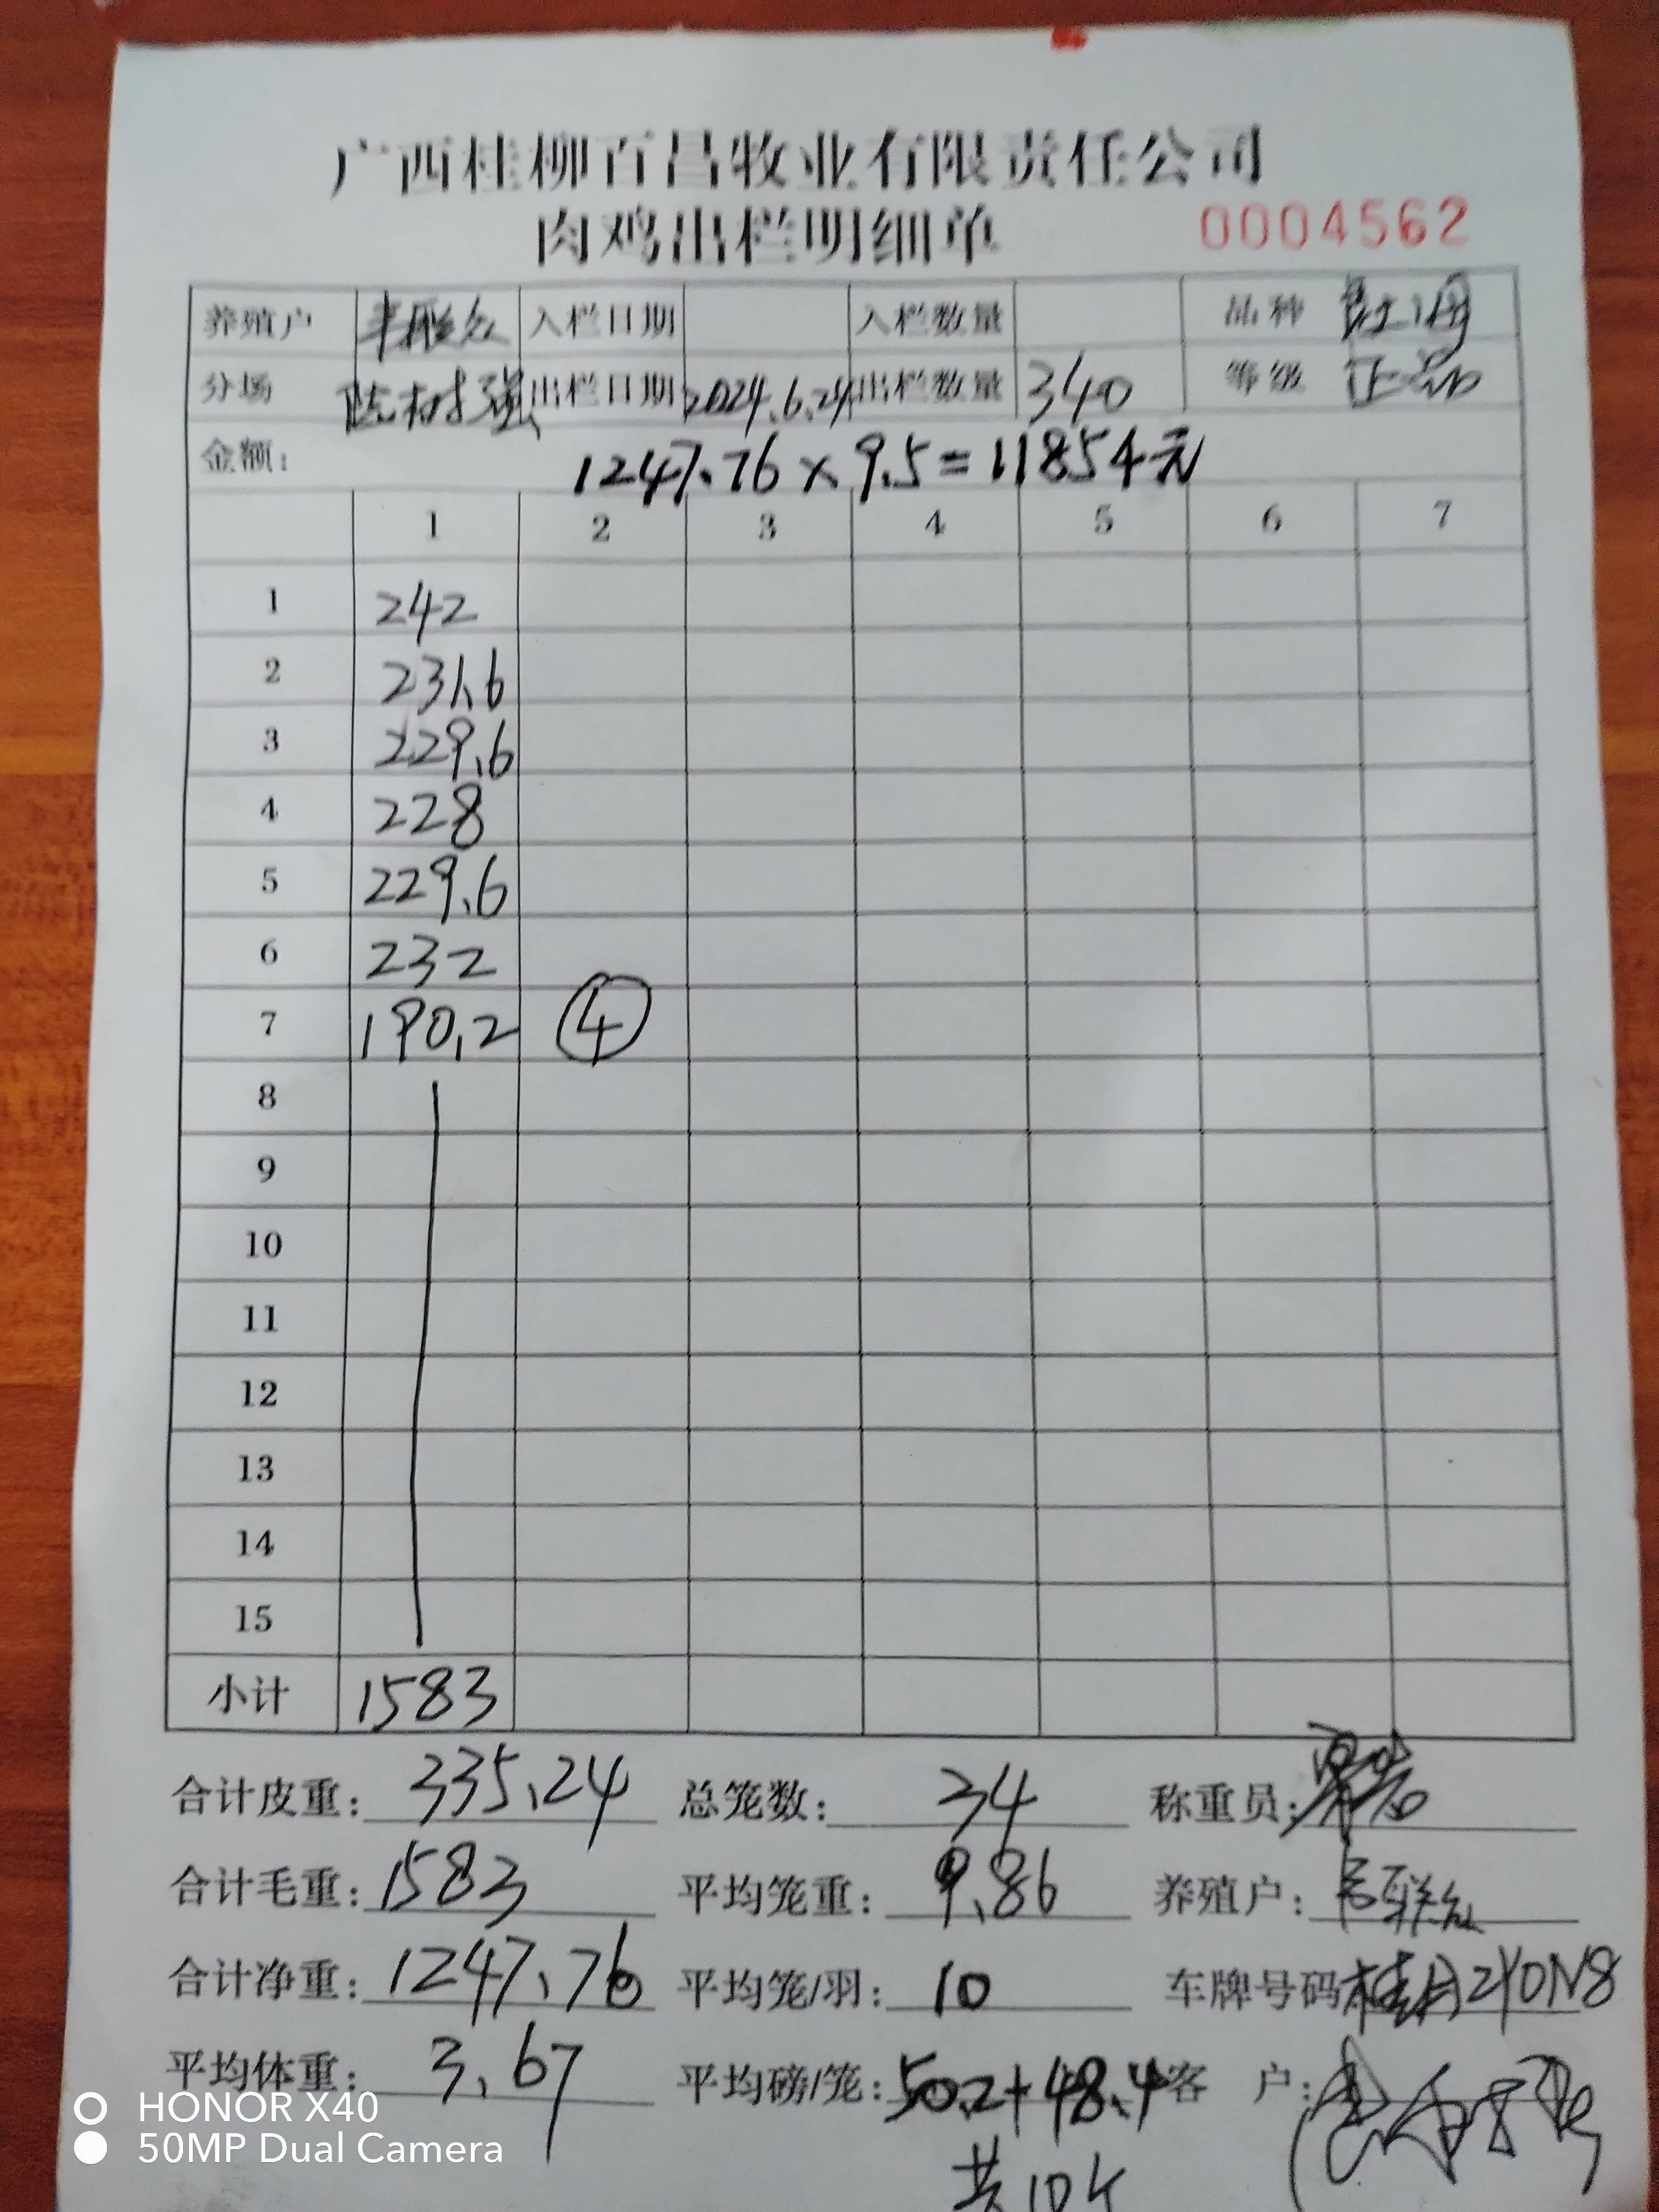 广西桂柳百昌牧业有限责任公司
肉鸡出栏明细单 0004562
养殖户 入栏日期 入栏数量 品种
分场 陈树强 出栏日期 2024.6.24 出栏数量 340 等级 正品
金额: 1247.76 x 9.5 = 11854元
1 2 3 4 5 6 7
1 242
2 231.6
3 229.6
4 228
5 229.6
6 232
7 190.2 ④
8
9
10
11
12
13
14
15
小计 1583
合计皮重: 335.24 总笼数: 34 称重员:
合计毛重: 1583 平均笼重: 9.86 养殖户:
合计净重: 1247.76 平均笼/羽: 10 车牌号码
平均体重: 3.67 平均磅/笼: 50.2+48.4 客户:
共10个
HONOR X40
50MP Dual Camera